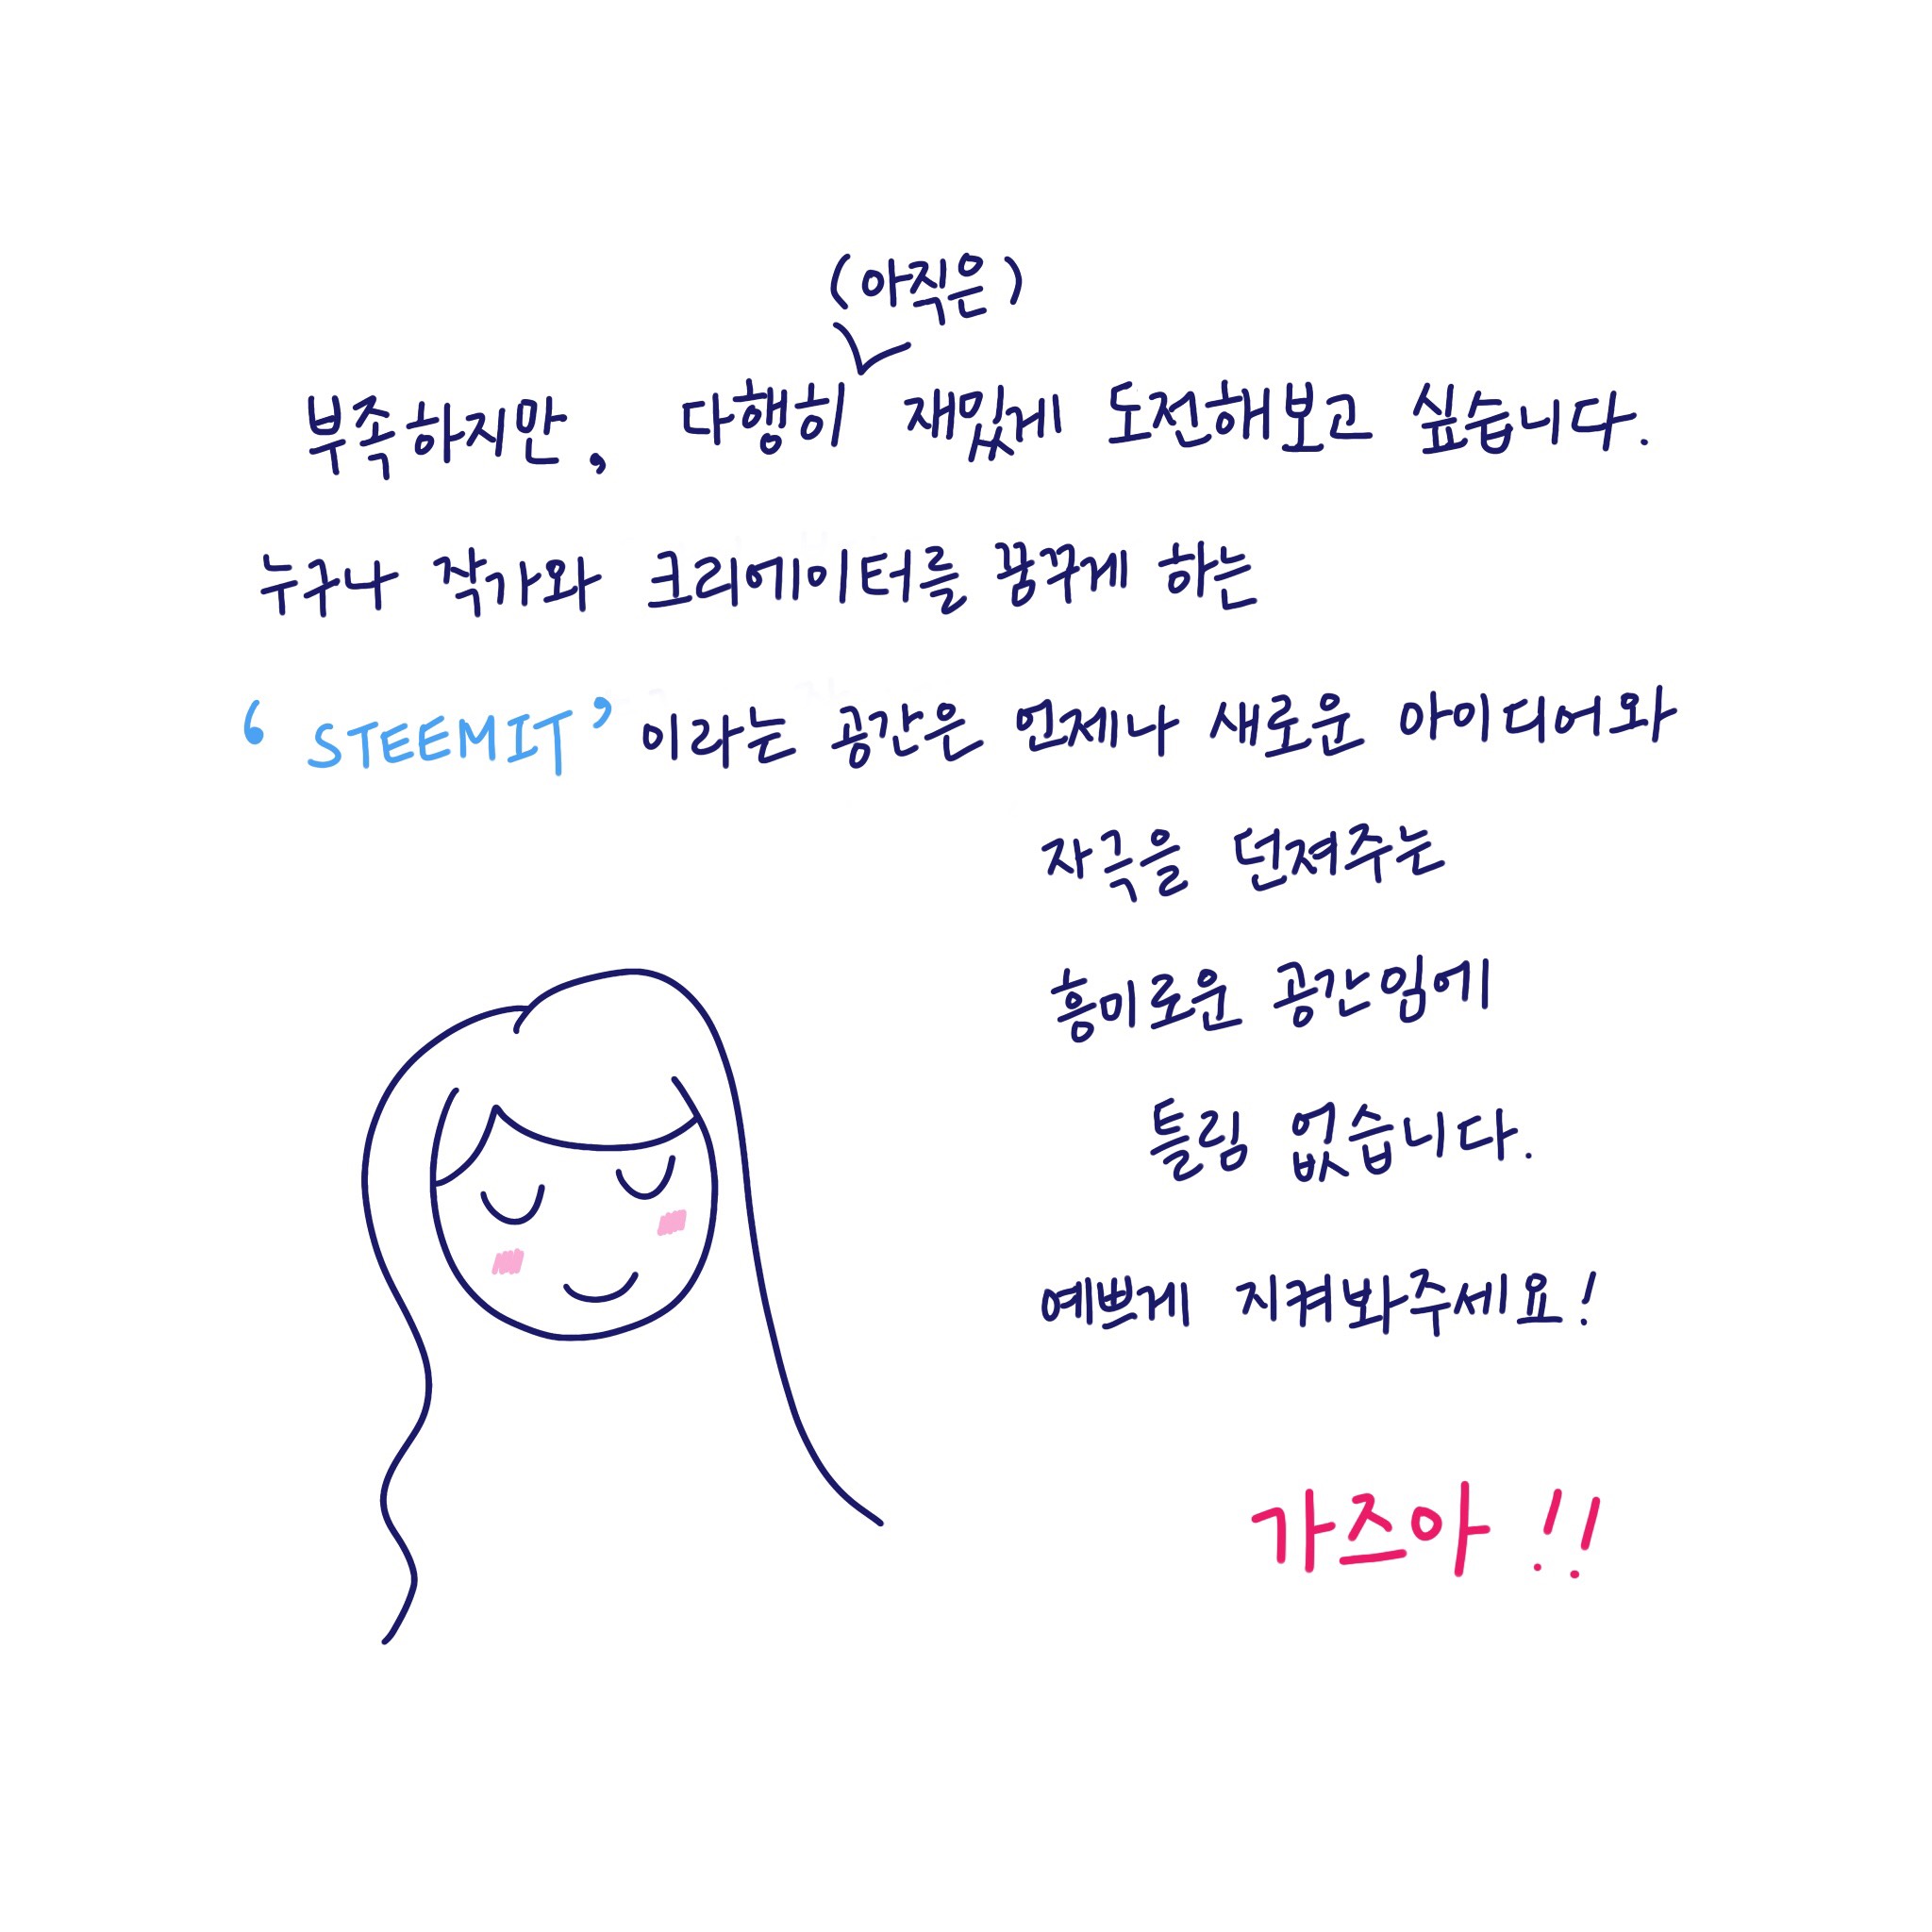 (아직은)
부족하지만, 다행히 재밌게 도전해보고 싶습니다.
누구나 작가와 크리에이터를 꿈꾸게 하는
‘STEEMIT’이라는 공간은 언제나 새로운 아이디어와
자극을 던져주는
흥미로운 공간임에
틀림 없습니다.
예쁘게 지켜봐주세요!
가즈아!!